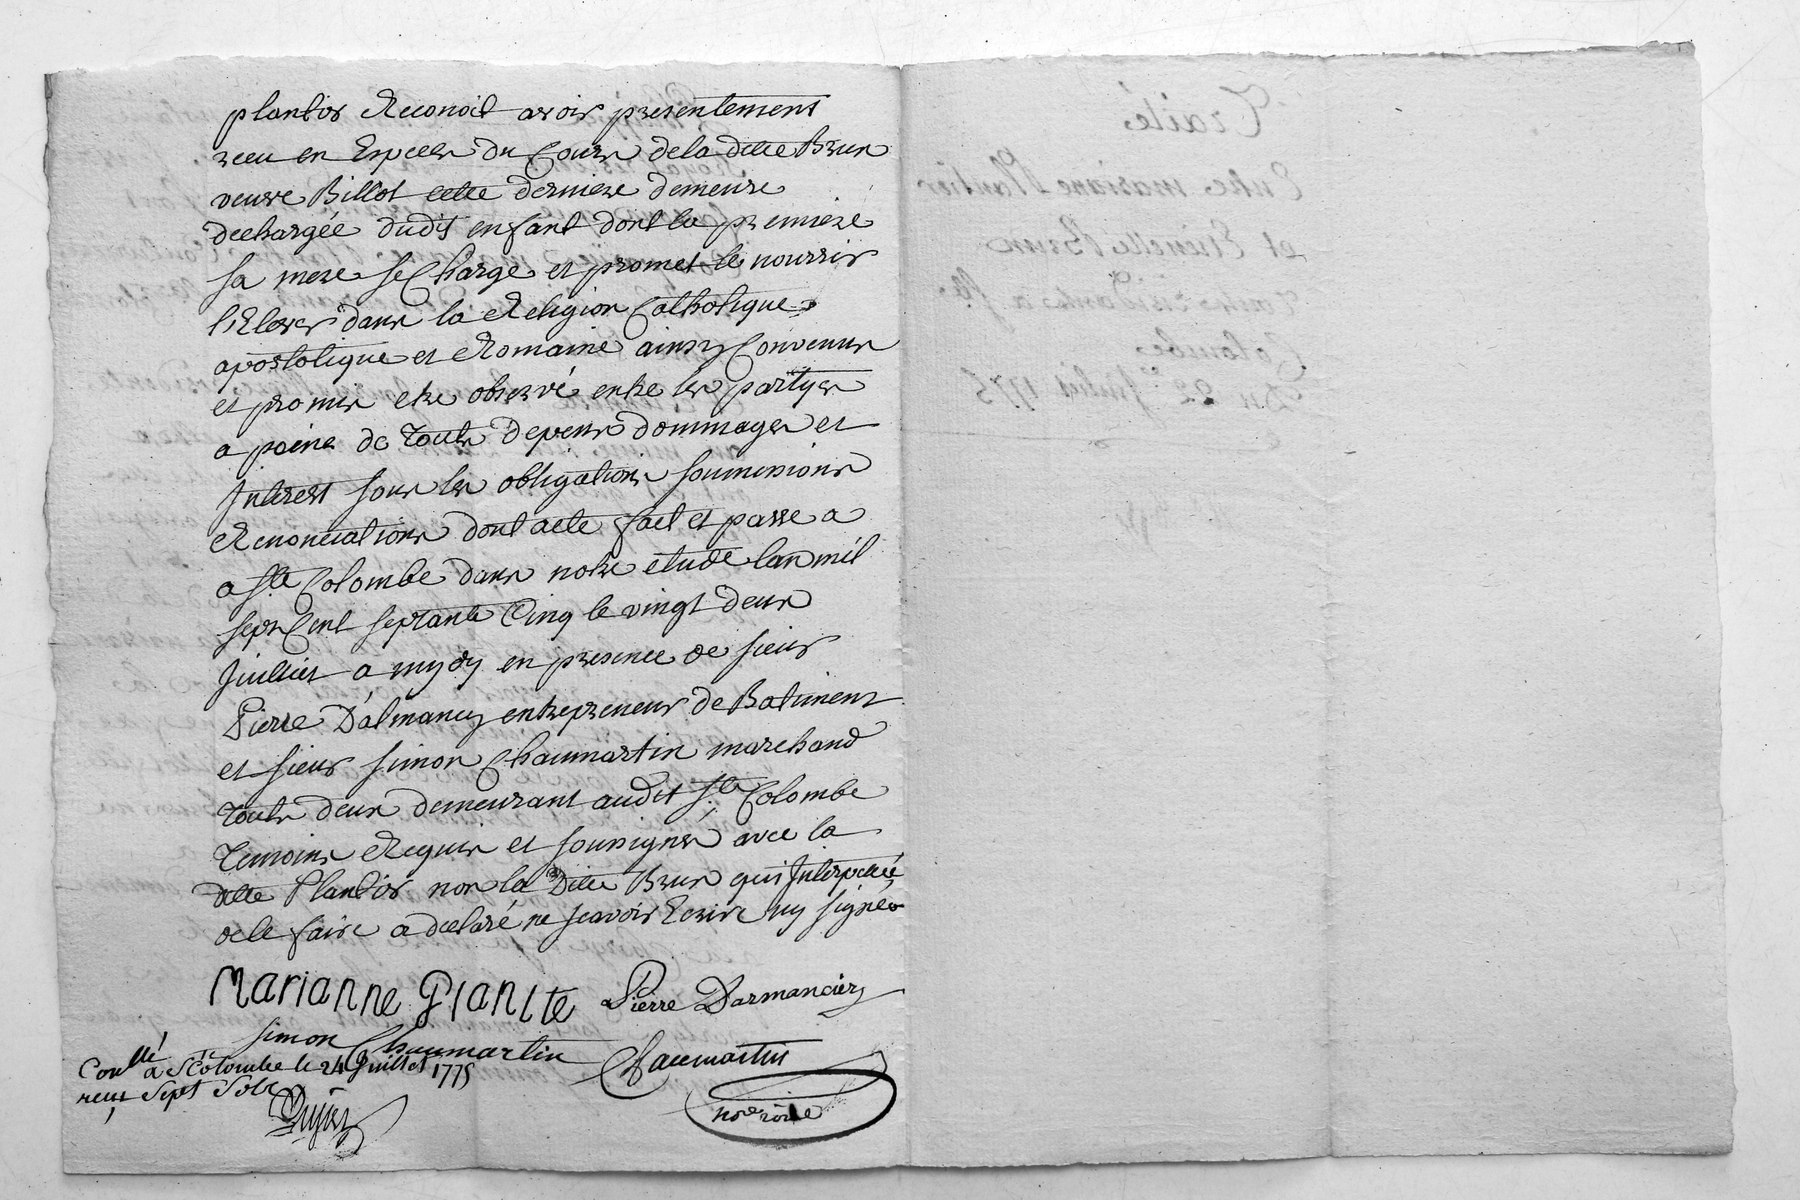 plantier Reconoit avoir presentement
receu en Especes du Cours de la ditte Brun
veuve Billot cette derniere demeure
dechargée dudit enfant dont la premiere
sa mere se Charge et promet le nourrir
l'Elever dans la Religion Catholique
apostolique et Romaine ainsy Convenus
et promis etre observé entre les partyes
a peine de touts depens dommages et
Interest sous les obligations soumissions
Renonciations dont acte fait et passe a
a Ste Colombe dans notre etude lan mil
sept Cent septante Cinq le vingt deux
Juillet a mydy en presence de sieur
Pierre D'almancy entrepreneur de Batiment
et sieur simon Chaumartin marchand
touts deux demeurant audit Ste Colombe
temoins Requis et soussignes avec la
ditte Plantier non la Ditte Brun qui Interpellée
de le faire a declaré ne scavoir Ecrire ny signer
Marianne Plantte Pierre Darmancier
simon Chaumartin
Chaumartin
nore roïle
Conllé a S Colombe le 24 Juillet 1775
reçu Sept Sols
Traité
Entre mariane Plantier
et Etienette Brun
Toutes residantes a Ste
Colombe
Du 22e Juillet 1775